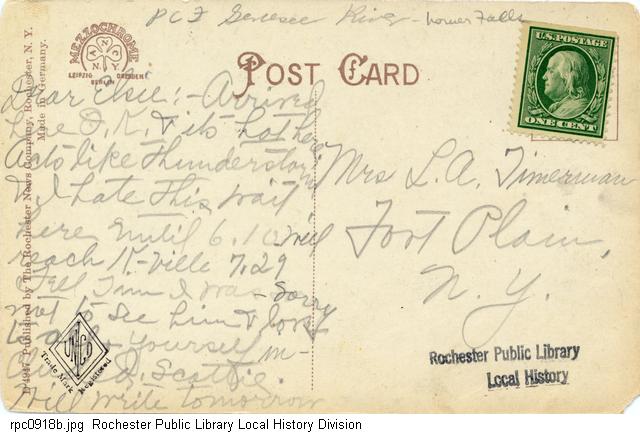 PCF Genesee River - Lower Falls
MEZZOCHROME
A N C
N Y
LEIPZIG DRESDEN
BERLIN
POST CARD
U.S. POSTAGE
ONE CENT
Dear Elsie:- Arrived
here O.K. & its hot here
Acts like thunderstorm
I hate this wait
here until 6.10 will
reach K-ville 7.29
Tell Jim I was sorry
not to see him & love
to yourself
Scottie.
Will write tomorrow
Mrs L.A. Timerman
Fort Plain,
N.Y.
Published by The Rochester News Company, Rochester, N. Y.
Made in Germany.
UNCO
Trade Mark Registered
Rochester Public Library
Local History
rpc0918b.jpg Rochester Public Library Local History Division